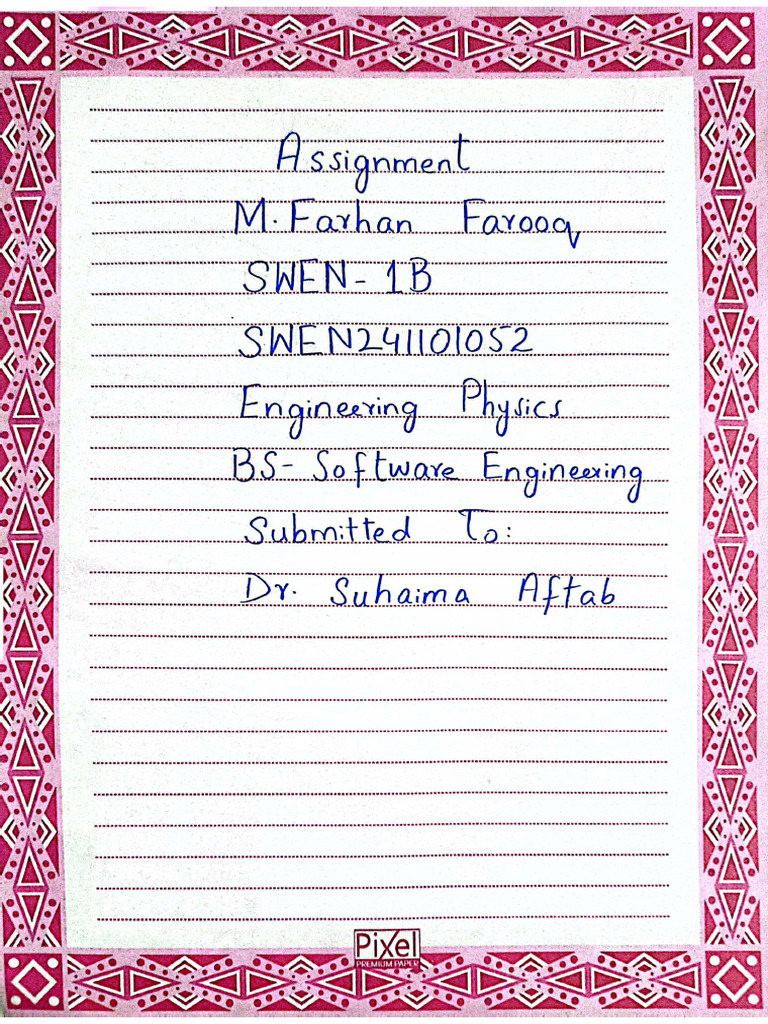 Assignment
M. Farhan Farooq
SWEN-1B
SWEN241101052
Engineering Physics
BS-Software Engineering
Submitted To:
Dr. Suhaima Aftab
Pixel
PREMIUM PAPER